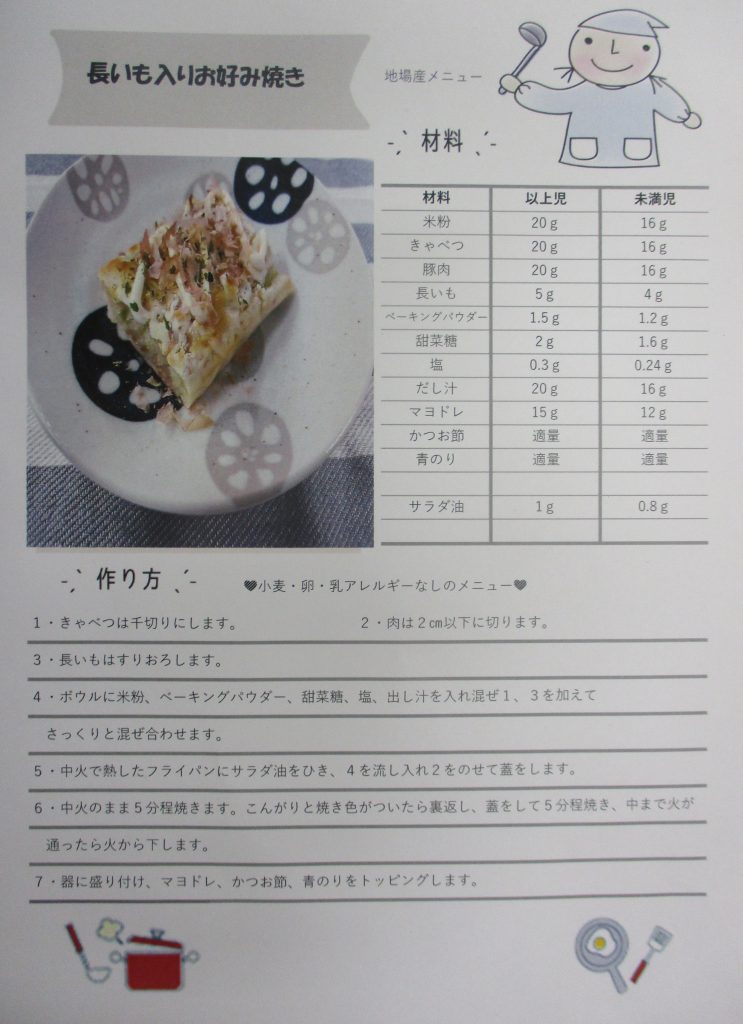 長いも入りお好み焼き
地場産メニュー
材料
材料 以上児 未満児
米粉 20g 16g
きゃべつ 20g 16g
豚肉 20g 16g
長いも 5g 4g
ベーキングパウダー 1.5g 1.2g
甜菜糖 2g 1.6g
塩 0.3g 0.24g
だし汁 20g 16g
マヨドレ 15g 12g
かつお節 適量 適量
青のり 適量 適量
サラダ油 1g 0.8g
作り方
♥小麦・卵・乳アレルギーなしのメニュー♥
1・きゃべつは千切りにします。 2・肉は2㎝以下に切ります。
3・長いもはすりおろします。
4・ボウルに米粉、ベーキングパウダー、甜菜糖、塩、出し汁を入れ混ぜ1、3を加えて
さっくりと混ぜ合わせます。
5・中火で熱したフライパンにサラダ油をひき、4を流し入れ2をのせて蓋をします。
6・中火のまま5分程焼きます。こんがりと焼き色がついたら裏返し、蓋をして5分程焼き、中まで火が
通ったら火から下します。
7・器に盛り付け、マヨドレ、かつお節、青のりをトッピングします。